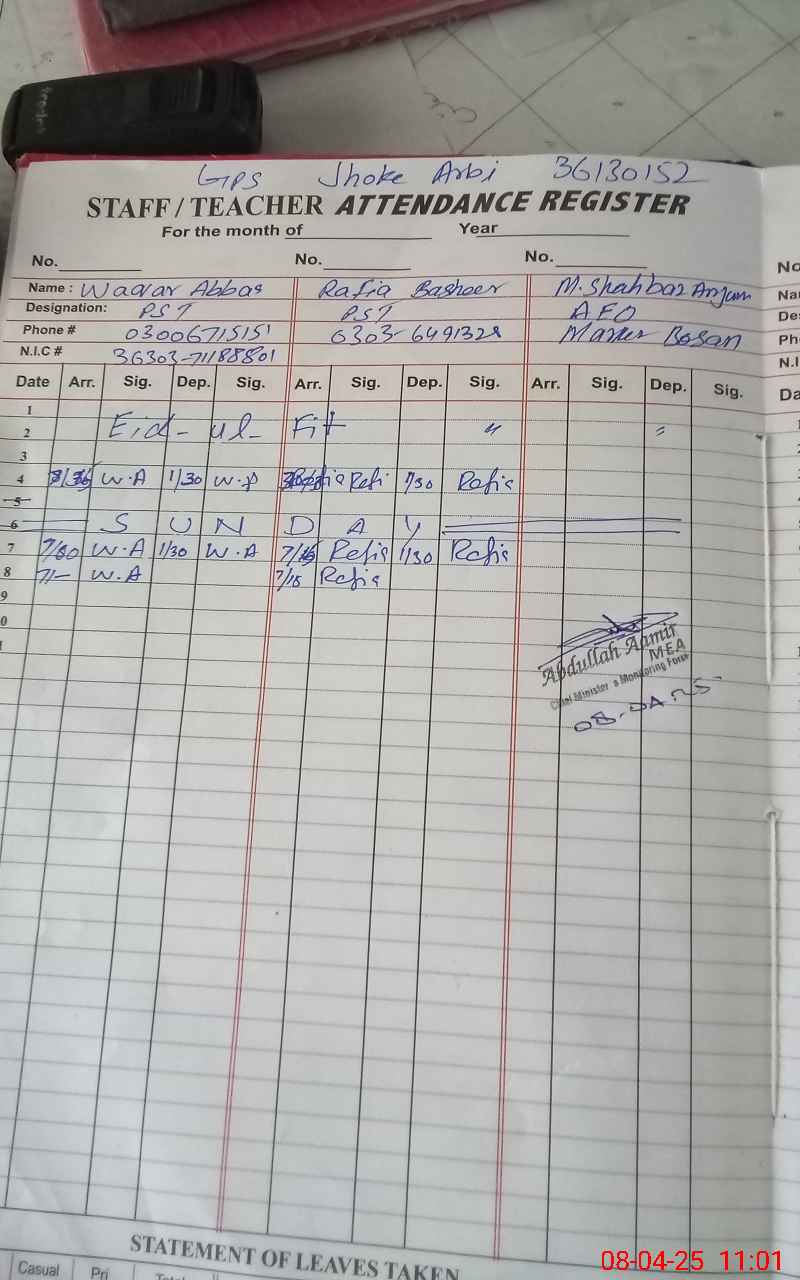 GPS Jhoke Arbi 36130152
STAFF / TEACHER ATTENDANCE REGISTER
For the month of Year
No. No. No.
Name : Waqar Abbas Rafia Basheer M. Shahbaz Anjum
Designation: PST PST AEO
Phone # 03006715151 0303-6491328 Marker Bosan
N.I.C # 36303-71188801
Date Arr. Sig. Dep. Sig. Arr. Sig. Dep. Sig. Arr. Sig. Dep. Sig.
1
2 Eid-ul-Fit " "
3
4 W.A 1/30 W.A Rafia 1/30 Rafia
5
6 SUNDAY
7 7/30 W.A 1/30 W.A Rafia 1/30 Rafia
8 7/- W.A 7/15 Rafia
9
0
Abdullah Aamir
MEA
Chief Minister's Monitoring Force
08-04-25
STATEMENT OF LEAVES TAKEN
Casual Pri
08-04-25 11:01